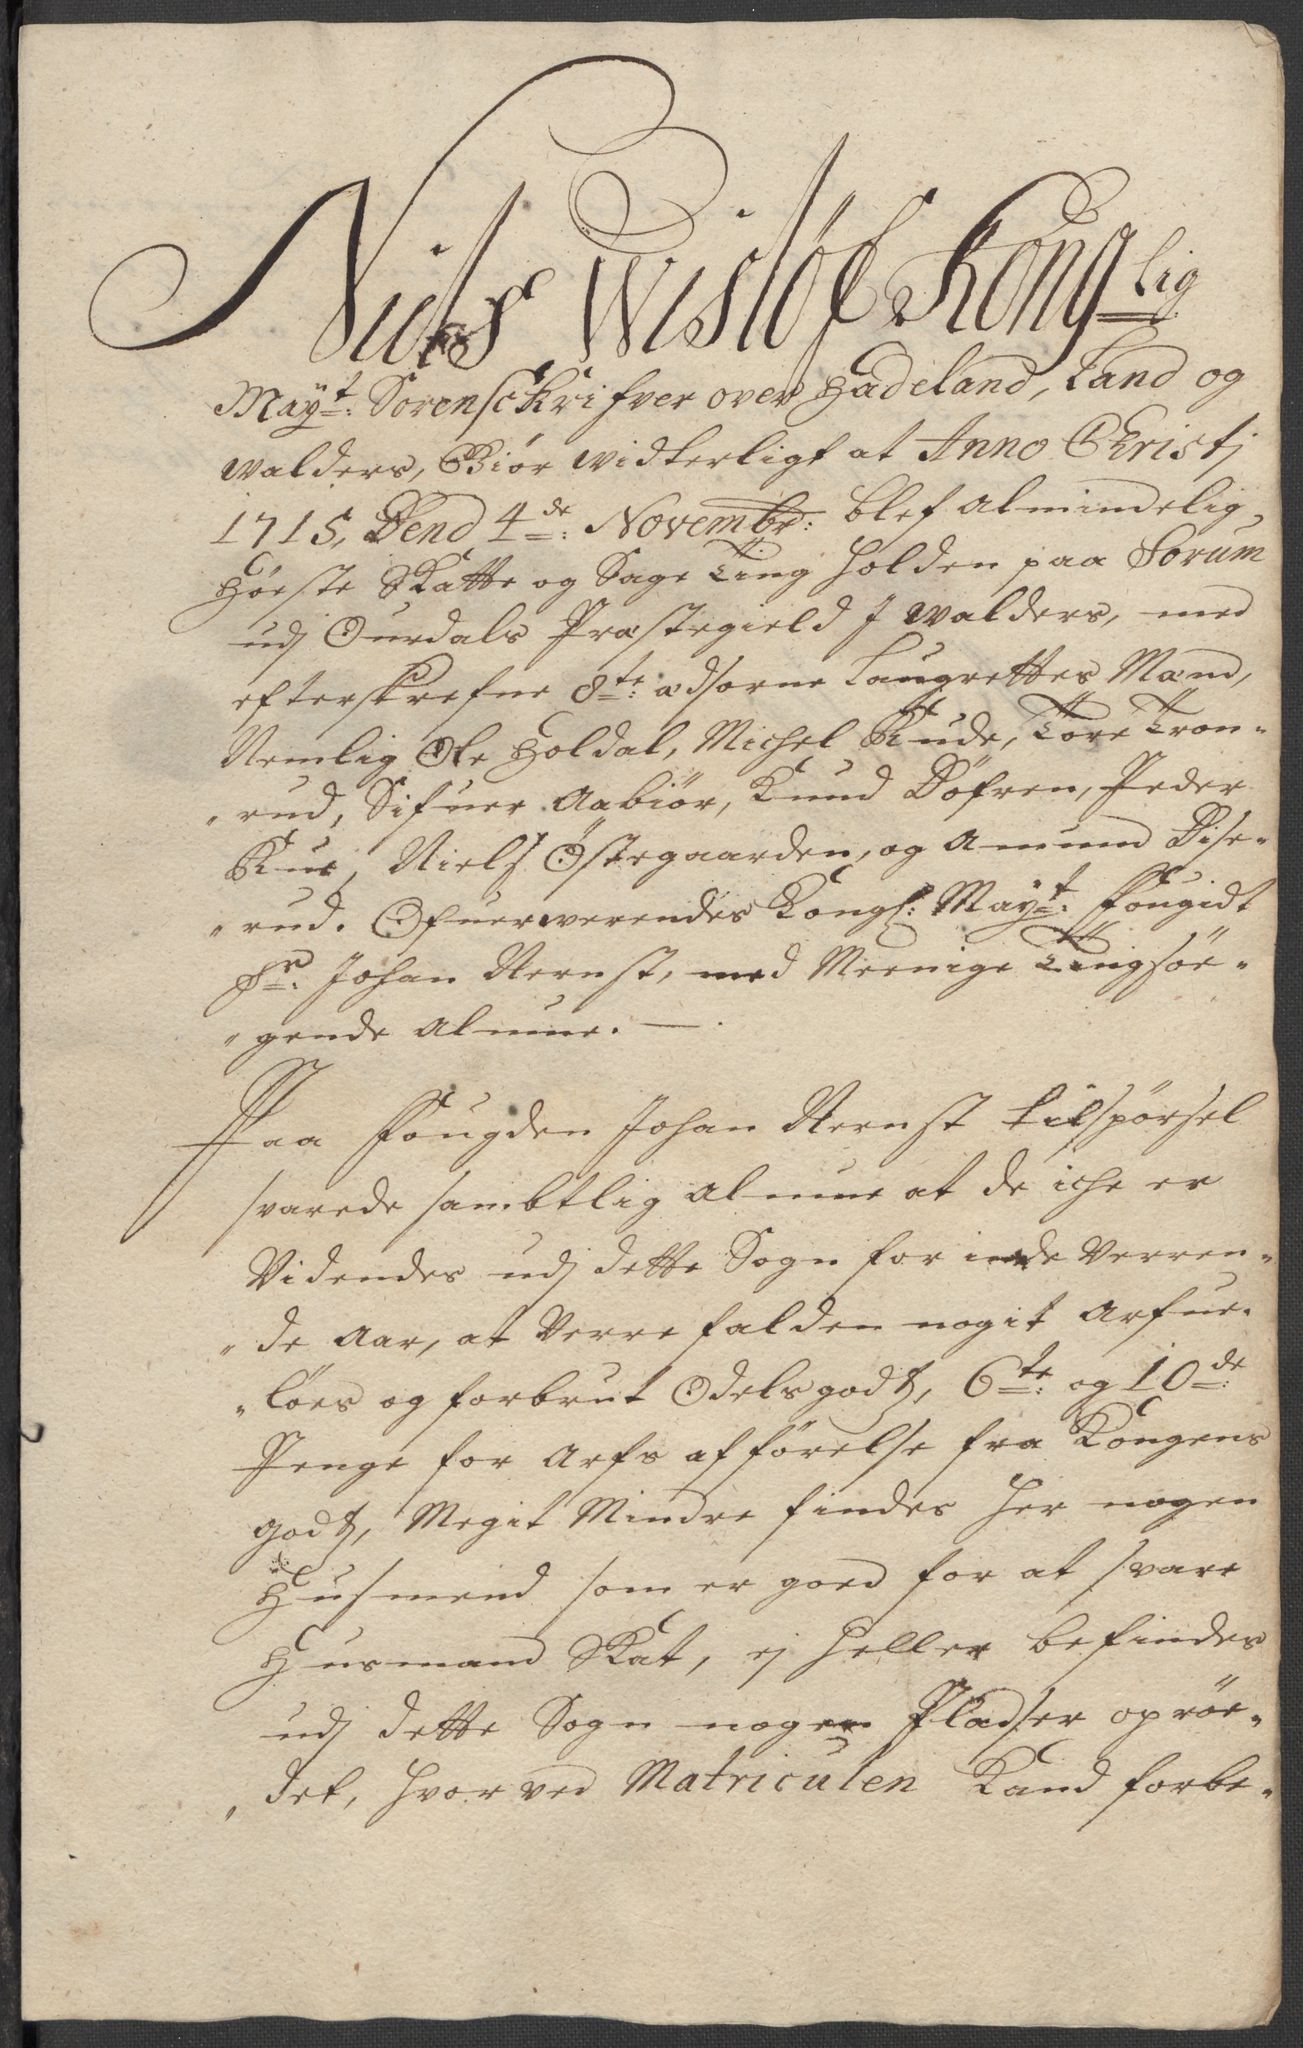 Niels Wisløf Konglig
Mayt: Sorenschrifver over Hadeland, Land og
walders, Giør widterligt at Anno Christj
1715, Dend 4de: Novembr: blef almindelig
Høste Skatte og Sage Ting holden paa Sorum
udj Ourdals Præstegield J walders, med
efterskrefne 8te: ædsorne Laugrettes Mænd,
Nemlig Ole Holdal, Michel Rude, Tore Tron-
"rud, Sifuer Aabiør, Knud Døfren, Peder
Rue, Niels Østegaarden, og Amund Dise-
"rud. Ofuerwerendes Kongl: Mayt: Fougidt
Sr. Johan Nernst, med Meenige Tingsøe-
"gende Almue. —.
Paa Fougden Johan Nernst tilspørsel
svarede sambtlig Almue at de iche er
Videndes udj dette Sogn for inde Verren-
"de Aar, at Verre falden nogit Arfue-
"løes og forbrut Odelsgodtz, 6te: og 10de:
Penge for Arfs afførelse fra Kongens
godtz, Megit Mindre findes her nogen
Husmend som er goed for at svare
Husmand Skat, ej heller befindes
udj dette Sogn nogen Pladser oprøe-
"det, hvor ved Matriculen Kand forbe-